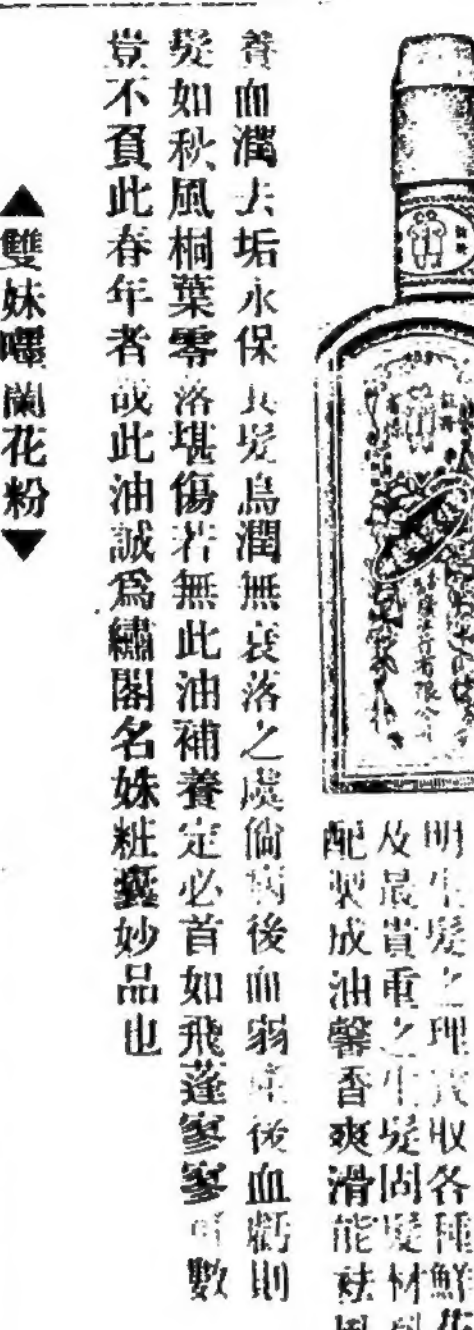 明生髮之理浸收各種鮮花
及最貴重之生髮固髮材料
配製成油馨香爽滑能祛風
養血潤去垢永保長髮烏潤無衰落之虞倘病後血弱產後血虧則
髮如秋風桐葉零落堪傷若無此油補養定必首如飛蓬寥寥可數
豈不負此春年者哉此油誠為繡閣名姝粧奩妙品也
▲雙妹嚜蘭花粉▼